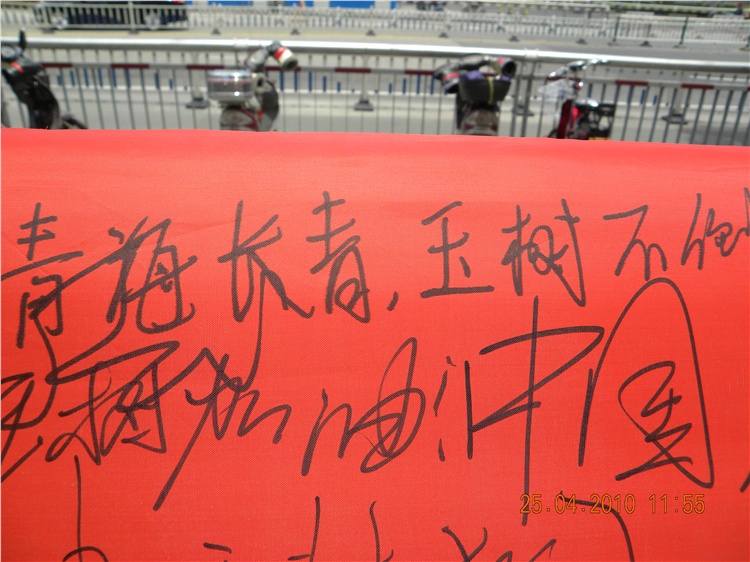 青海长青，玉树不倒
玉树加油！中国
25.04.2010 11:55